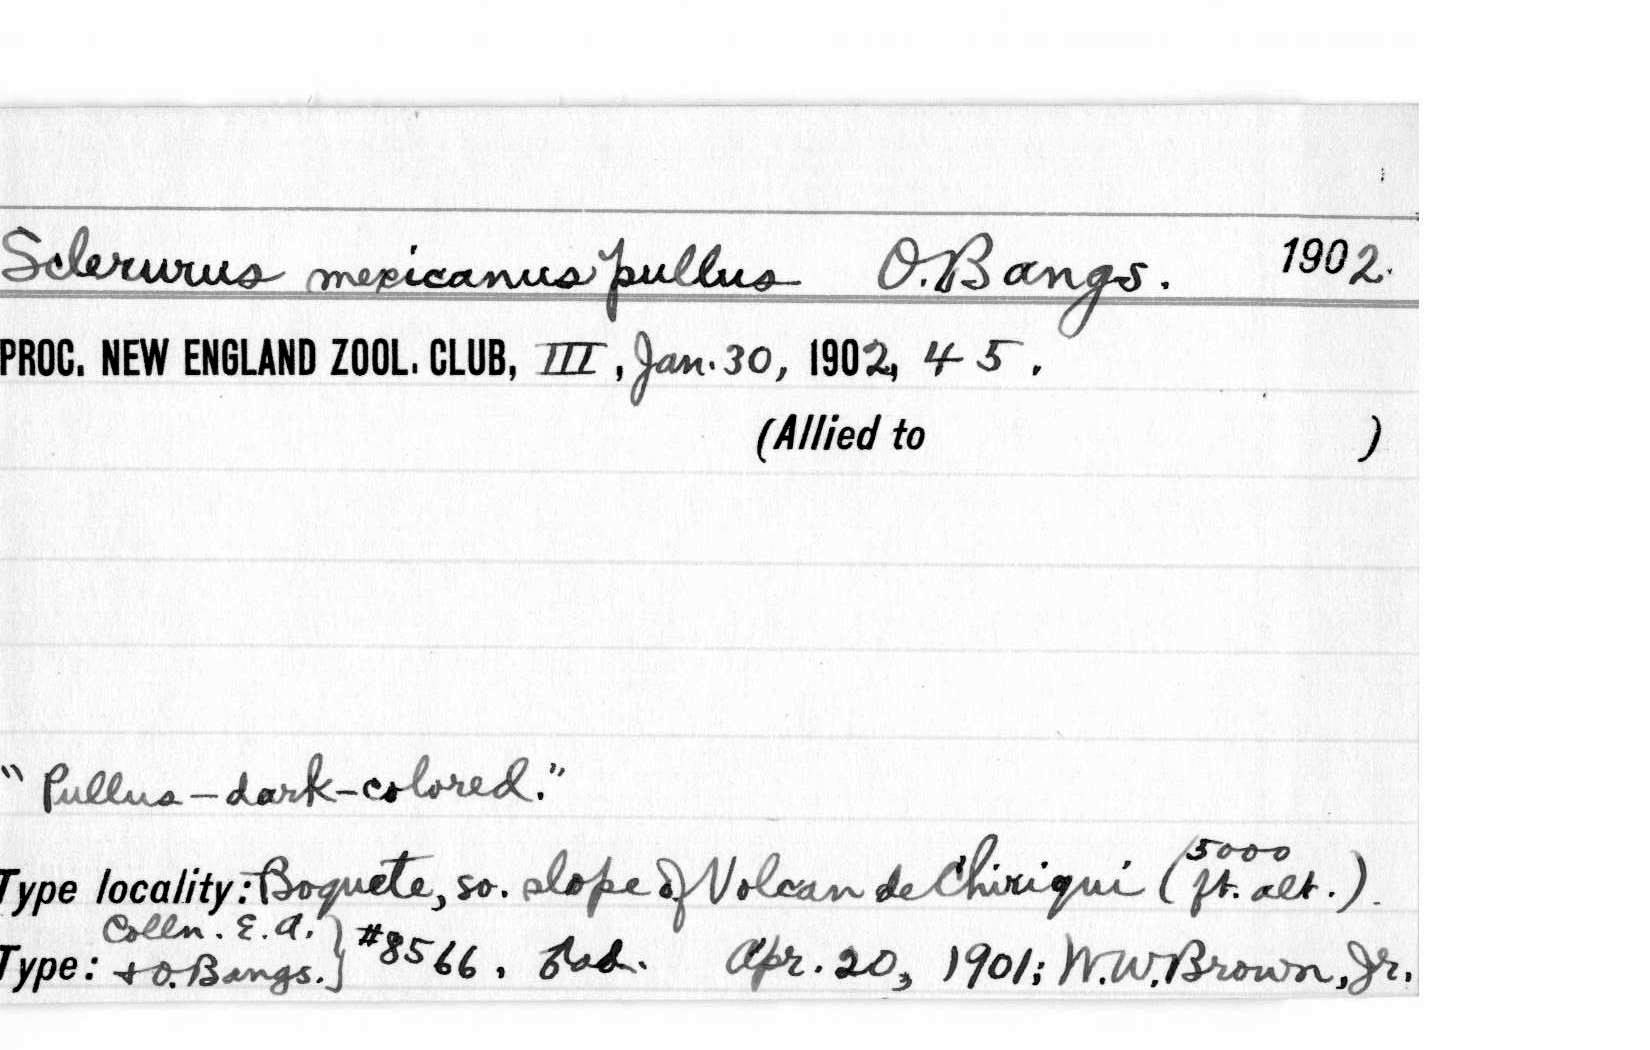 Sclerurus mexicanus pullus O. Bangs. 1902.
PROC. NEW ENGLAND ZOOL. CLUB, III, Jan. 30, 1902, 45.
(Allied to )
"Pullus–dark-colored."
Type locality: Boquete, so. slope of Volcan de Chiriqui (5000 ft. alt.).
Colln. E. A.
Type: + O. Bangs.} #8566. ad. Apr. 20, 1901; W. W. Brown, Jr.